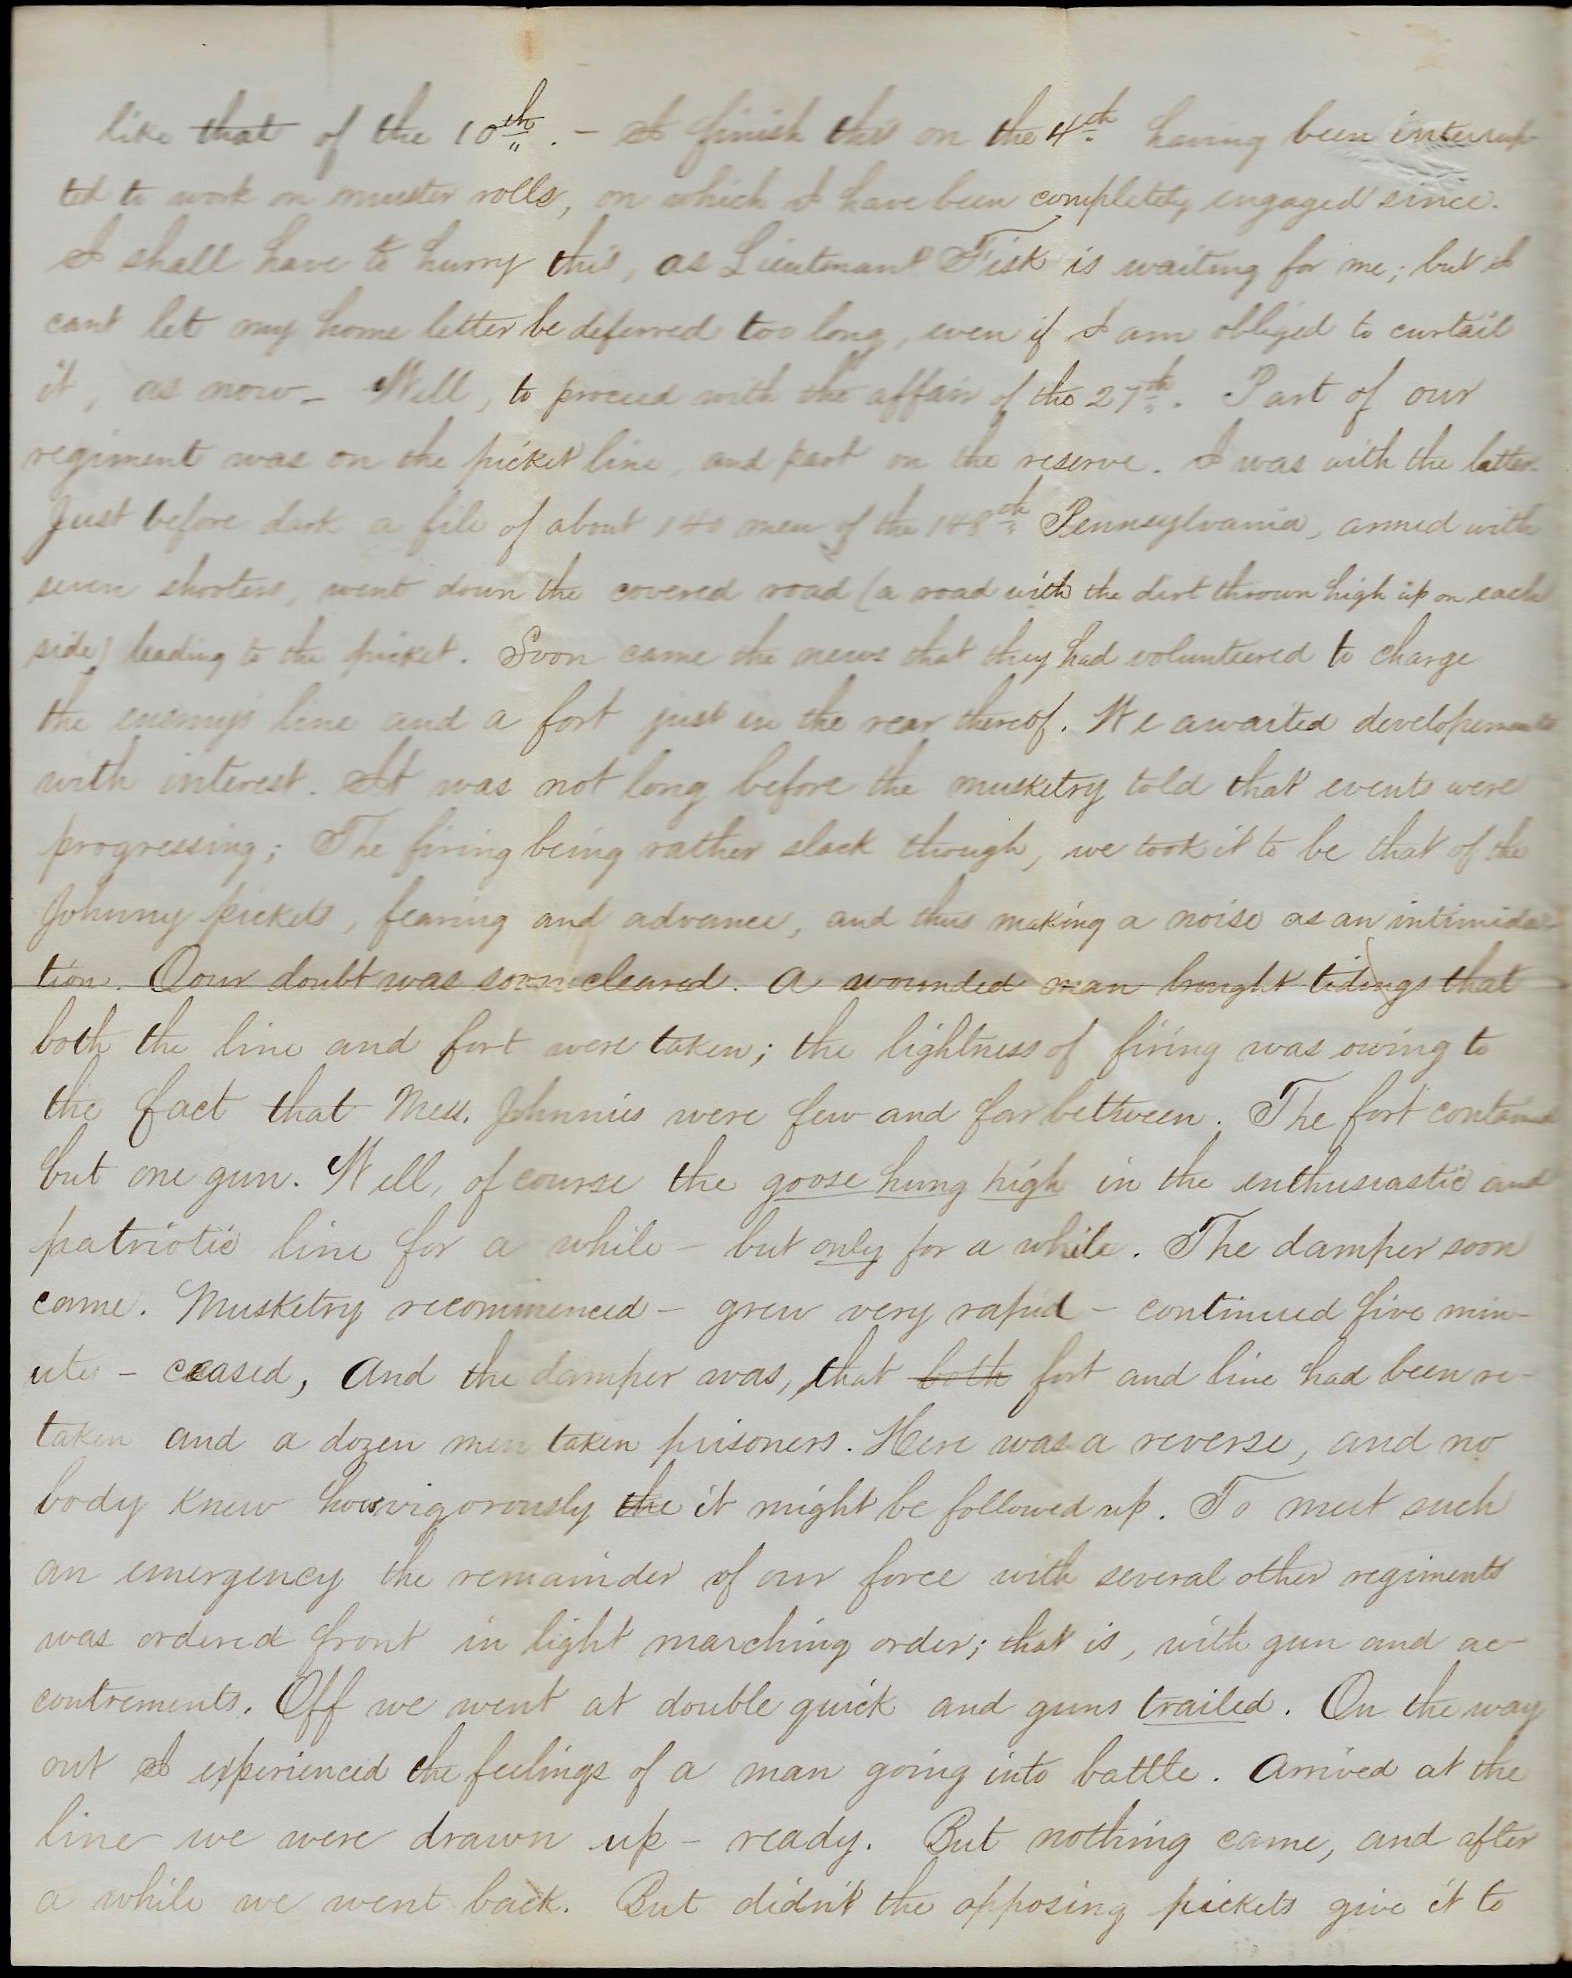 like that of the 10th. - I finish this on the 4th having been interrup-
ted to work on muster rolls, on which I have been completely engaged since.
I shall have to hurry this, as Lieutenant Fisk is waiting for me; but I
cant let my home letter be deferred too long, even if I am obliged to curtail
it, as now - Well, to proceed with the affair of the 27th. Part of our
regiment was on the picket line, and part on the reserve. I was with the latter.
Just before dark a file of about 140 men of the 148th Pennsylvania, armed with
seven shooters, went down the covered road (a road with the dirt thrown high up on each
side) leading to the picket. Soon came the news that they had volunteered to charge
the enemys line and a fort just in the rear thereof. We awaited developements
with interest. It was not long before the musketry told that events were
progressing; The firing being rather slack though, we took it to be that of the
Johnny pickets, fearing and advance, and thus making a noise as an intimida-
tion. Oour doubt was soon cleared. A wounded man brought tidings that
both the line and fort were taken; the lightness of firing was owing to
the fact that Mess. Johnnies were few and far bettween. The fort contained
but one gun. Well, of course the goose hung high in the enthusiastic and
patriotic line for a while - but only for a while. The damper soon
came. Musketry recommenced - grew very rapid - continued five min-
utes - ceased, And the damper was, that both fort and line had been re-
taken and a dozen men taken prisoners. Here was a reverse, and no
body knew how vigorously the it might be followed up. To meet such
an emergency the remainder of our force with several other regiments
was ordered front in light marching order; that is, with gun and ac-
coutrements. Off we went at double quick and guns trailed. On the way
out I experienced the feelings of a man going into battle. Arrived at the
line we were drawn up - ready. But nothing came, and after
a while we went back. But didn't the opposing pickets give it to